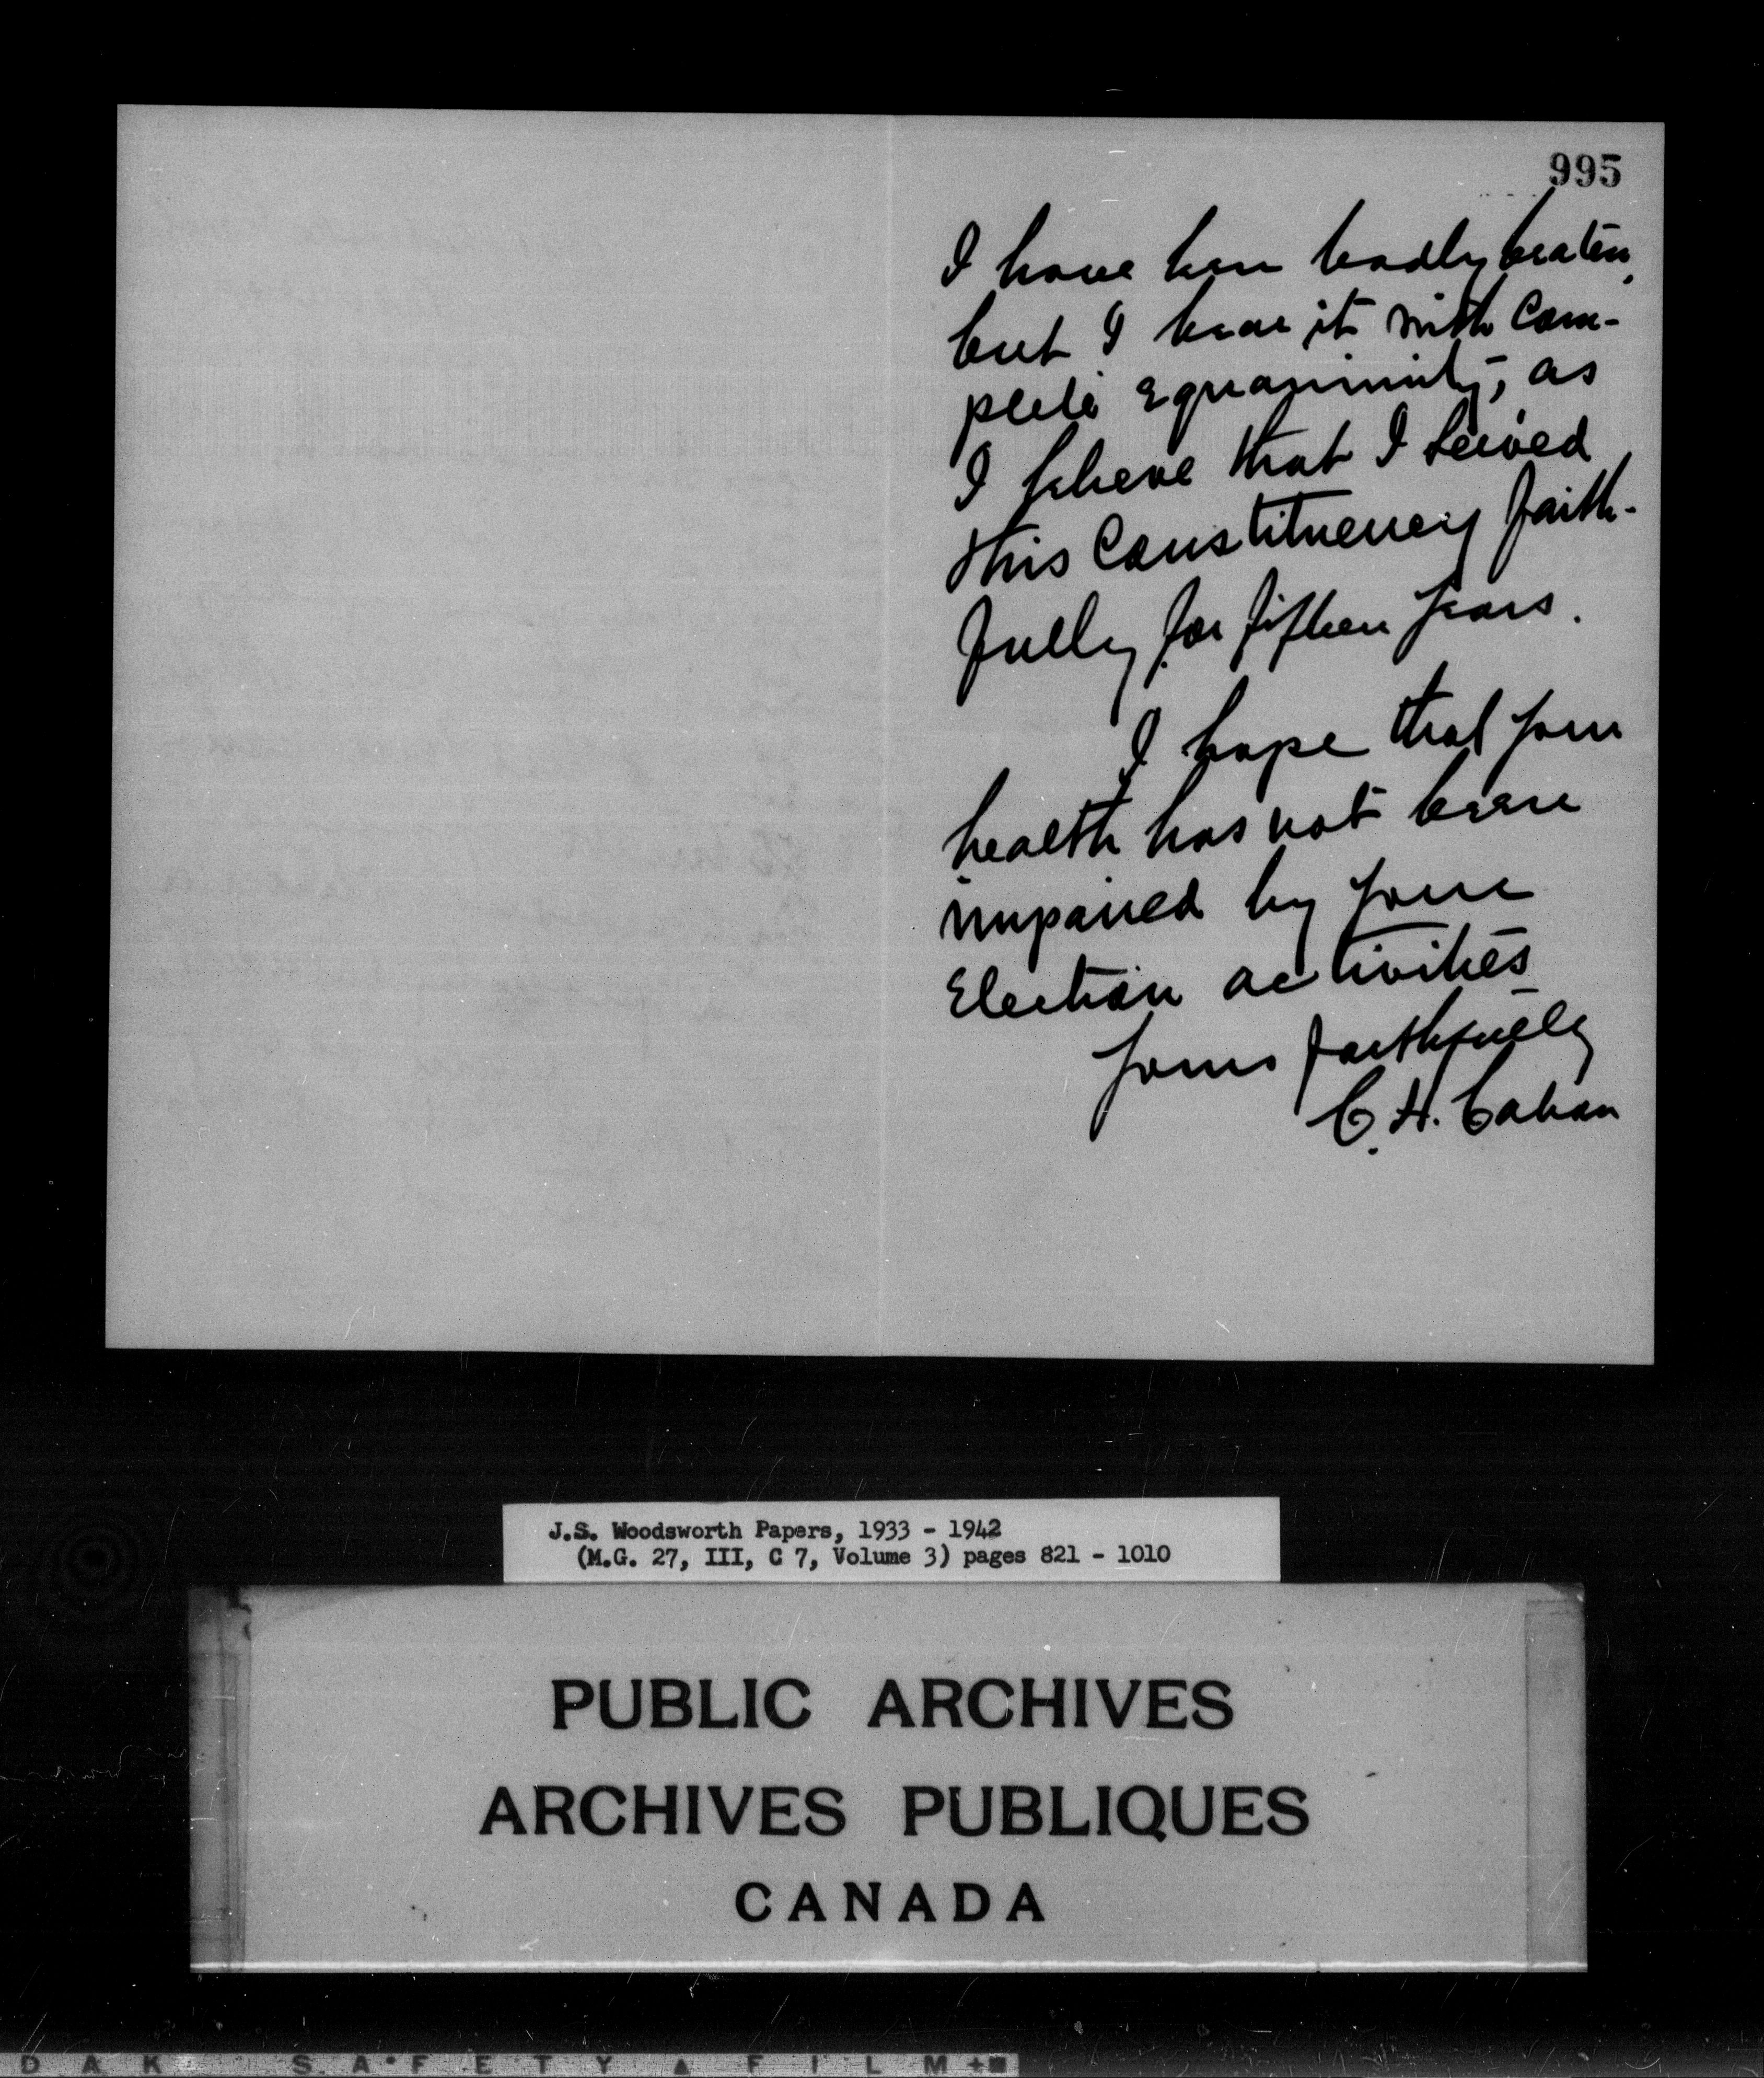 995
I have been badly beaten,
but I bear it with com-
plete equanimity, as
I believe that I served
this Constituency faith-
fully for fifteen years.
I hope that your
health has not been
impaired by your
Election activities
Yours faithfully
C. H. Cahan
J.S. Woodsworth Papers, 1933 - 1942
(M.G. 27, III, C 7, Volume 3) pages 821 - 1010
PUBLIC ARCHIVES
ARCHIVES PUBLIQUES
CANADA
DAK SAFETY FILM